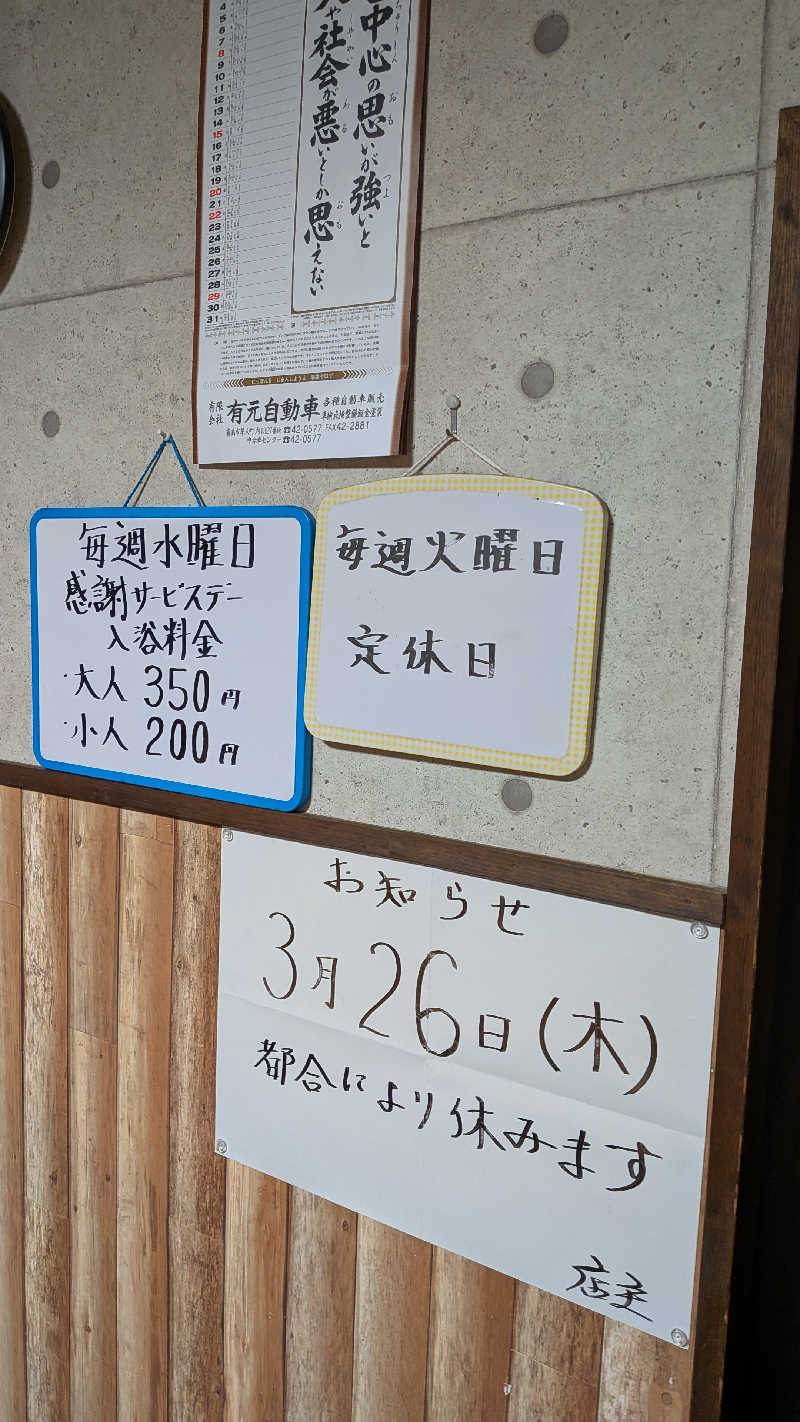 中心の思いが強いと
や社会が悪いとしか思えない
4
5
6
7
8
9
10
11
12
13
14
15
16
17
18
19
20
21
22
23
24
25
26
27
28
29
30
31
有限会社 有元自動車 各種自動車販売
☎42-0577 FAX42-2881
中古車センター ☎42-0577
毎週水曜日
感謝サービスデー
入浴料金
・大人 350円
・小人 200円
毎週火曜日
定休日
お知らせ
3月26日(木)
都合により休みます
店主